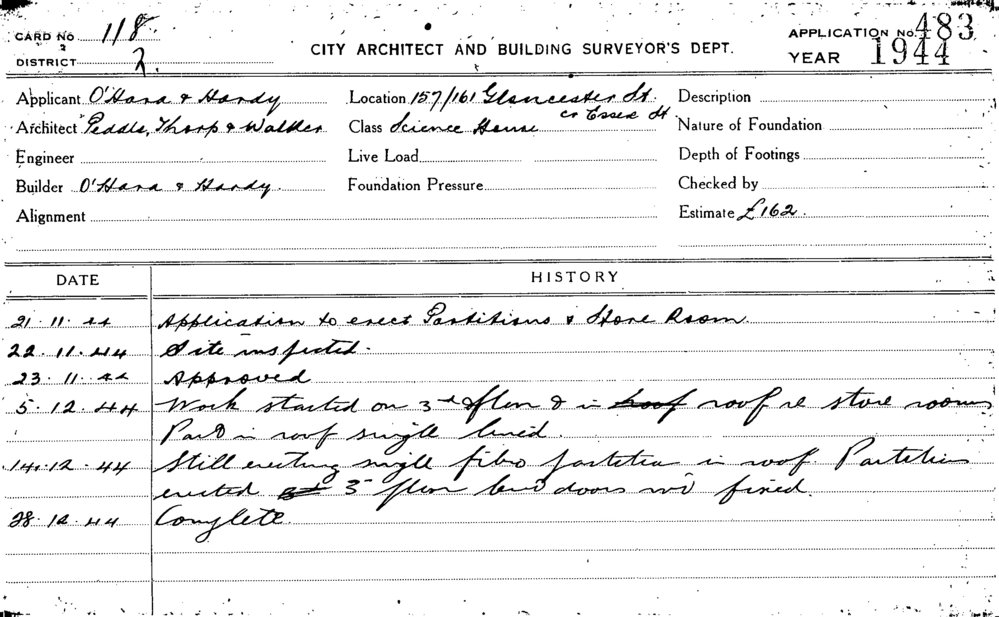 CARD No 118.
DISTRICT 2.
CITY ARCHITECT AND BUILDING SURVEYOR'S DEPT.
APPLICATION No. 483
YEAR 1944
Applicant O'Hara & Hardy
Location 157/161 Gloucester St. cr Essex St.
Description
Architect Peddle, Thorp & Walker
Class Science House
Nature of Foundation
Engineer
Live Load
Depth of Footings
Builder O'Hara & Hardy.
Foundation Pressure
Checked by
Alignment
Estimate £162.
DATE HISTORY
21.11.44 Application to erect Partitions & Store Room.
22.11.44 Site inspected.
23.11.44 Approved
5.12.44 Work started on 3rd floor & in roof roof re store rooms
Part in roof single lined.
14.12.44 Still erecting single fibro partition in roof. Partition
erected 3rd floor doors fixed.
28.12.44 Complete.